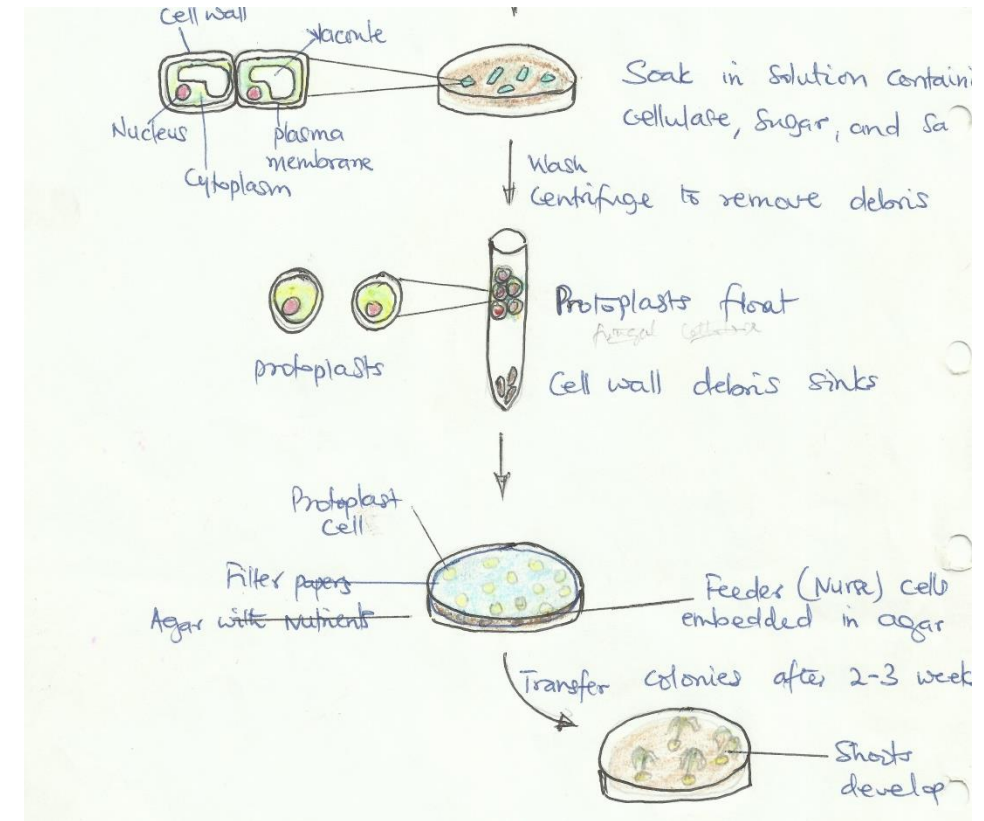 Cell wall
Vacoule
Nucleus
plasma
membrane
Cytoplasm
Soak in solution containi
cellulase, sugar, and Sa
Wash
Centrifuge to remove debris
Protoplasts float
protoplasts
Cell wall debris sinks
Protoplast
Cell
Filter papers
Agar with Nutrients
Feeder (Nurse) cells
embedded in agar
Transfer colonies after 2-3 week
Shoots
develop